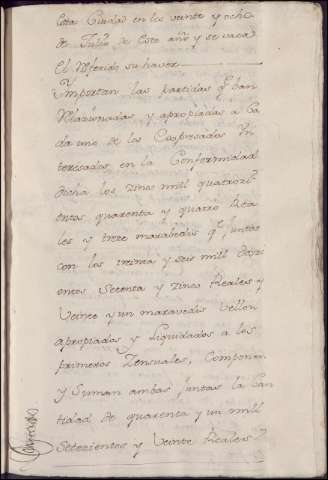 esta Ciudad en los veinte y ocho
de Julio de este año y se vaca
el Referido su haver
Ymportan las partidas q.e ban
Relacionadas y apropiadas a Ca
da uno de los Expresados Yn
teresados en la Conformidad
dicha los Zinco mill quatrozi
entos quarenta y quatro Rea
les y treze maravedis q.e Juntos
con los treinta y seis mill dozi
entos Setenta y Zinco Reales y
Veinte y un maravedis Vellon
apropiados y Liquidados a los
primeros Zensuales, Componen
y Suman ambas Juntas la Can
tidad de quarenta y un mill
Setezientos y Veinte Reales